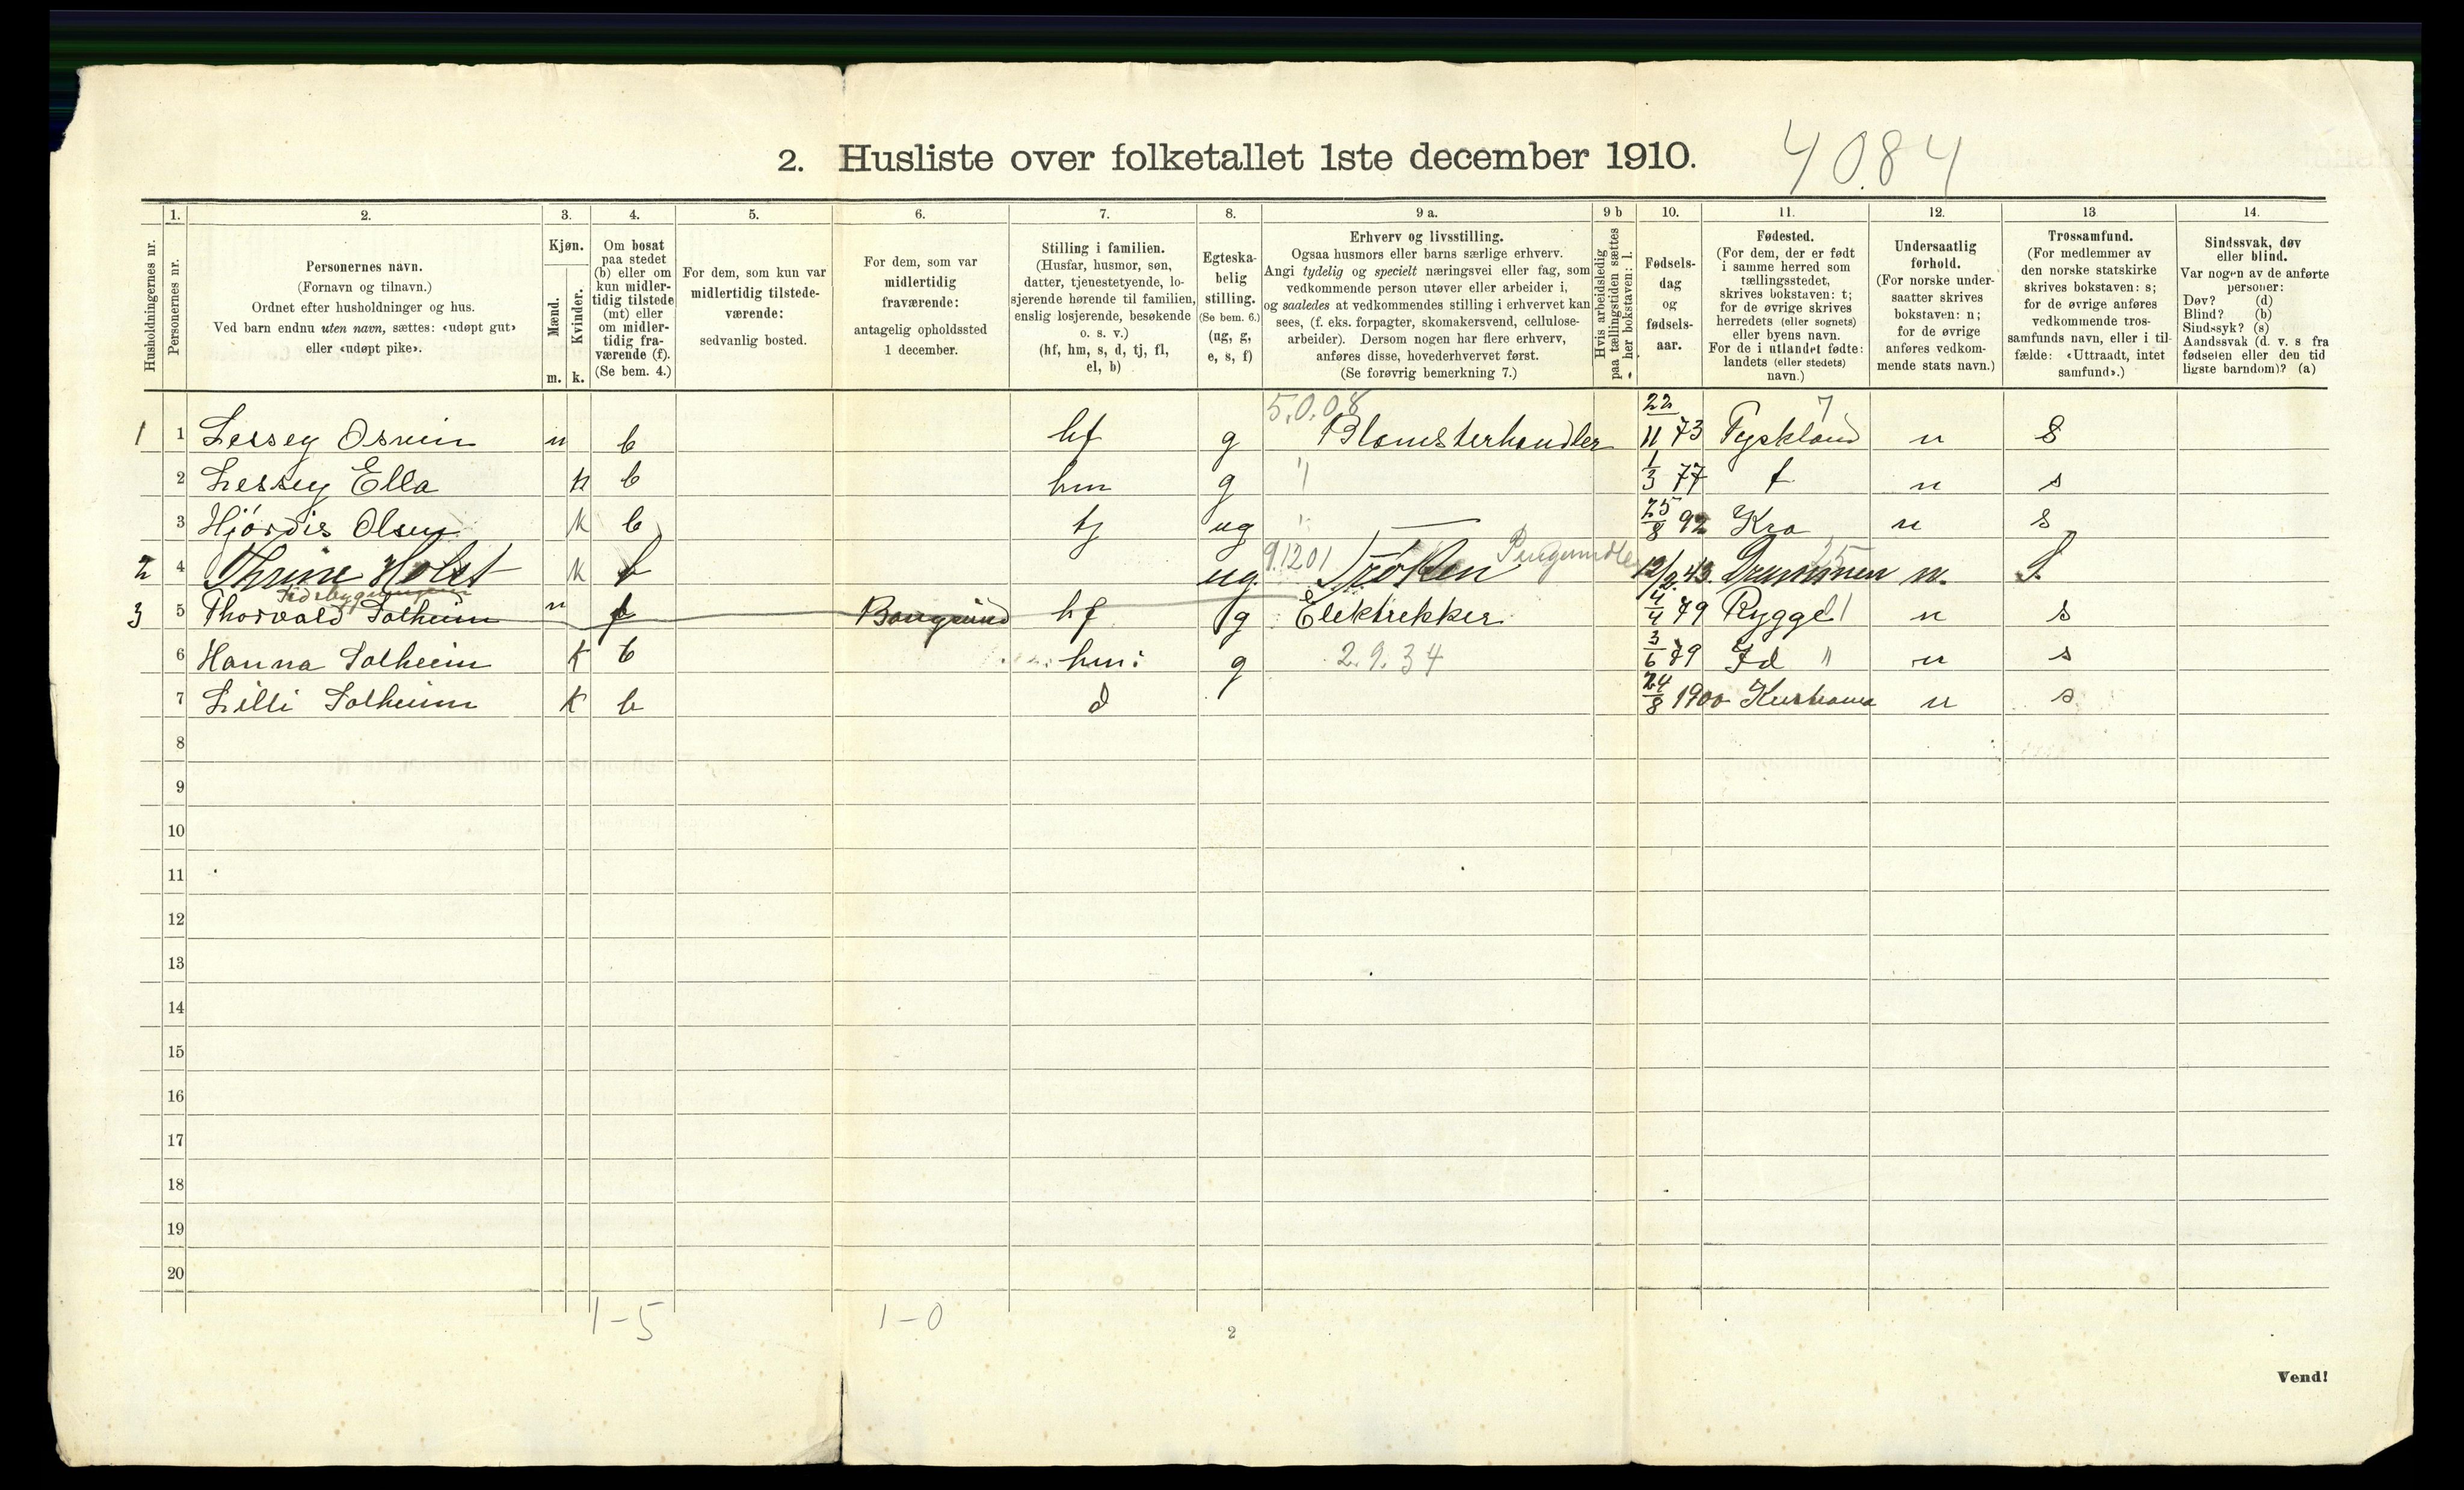 2. Husliste over folketallet 1ste december 1910.
4084
Husholdningernes nr.
1.
Personernes nr.
2.
Personernes navn.
(Fornavn og tilnavn.)
Ordnet efter husholdninger og hus.
Ved barn endnu uten navn, sættes: «udøpt gut»
eller «udøpt pike».
3.
Kjøn.
Mænd.
Kvinder.
m. k.
4.
Om bosat
paa stedet
(b) eller om
kun midler-
tidig tilstede
(mt) eller
om midler-
tidig fra-
værende (f).
(Se bem. 4.)
5.
For dem, som kun var
midlertidig tilstede-
værende:
sedvanlig bosted.
6.
For dem, som var
midlertidig
fraværende:
antagelig opholdssted
1 december.
7.
Stilling i familien.
(Husfar, husmor, søn,
datter, tjenestetyende, lo-
sjerende hørende til familien,
enslig losjerende, besøkende
o. s. v.)
(hf, hm, s, d, tj, fl,
el, b)
8.
Egteska-
belig
stilling.
(Se bem. 6.)
(ug, g,
e, s, f)
9 a.
Erhverv og livsstilling.
Ogsaa husmors eller barns særlige erhverv.
Angi tydelig og specielt næringsvei eller fag, som
vedkommende person utøver eller arbeider i,
og saaledes at vedkommendes stilling i erhvervet kan
sees, (f. eks. forpagter, skomakersvend, cellulose-
arbeider). Dersom nogen har flere erhverv,
anføres disse, hovederhvervet først.
(Se forøvrig bemerkning 7.)
9 b
Hvis arbeidsledig
paa tællingstiden sættes
her bokstaven: l.
10.
Fødsels-
dag
og
fødsels-
aar.
11.
Fødested.
(For dem, der er født
i samme herred som
tællingsstedet,
skrives bokstaven: t;
for de øvrige skrives
herredets (eller sognets)
eller byens navn.
For de i utlandet fødte:
landets (eller stedets)
navn.)
12.
Undersaatlig
forhold.
(For norske under-
saatter skrives
bokstaven: n;
for de øvrige
anføres vedkom-
mende stats navn.)
13
Trossamfund.
(For medlemmer av
den norske statskirke
skrives bokstaven: s;
for de øvrige anføres
vedkommende tros-
samfunds navn, eller i til-
fælde: «Uttraadt, intet
samfund».)
14.
Sindssvak, døv
eller blind.
Var nogen av de anførte
personer:
Døv? (d)
Blind? (b)
Sindssyk? (s)
Aandssvak (d. v. s fra
fødselen eller den tid
ligste barndom)? (a)
5.0.08 7
1 1 Lessey m b hf g Blomsterhandler 22/11 73 Tyskland n S
2 Lessey Ella k b hm g " 1/3 77 t n s
3 Hjórdis Olsen k b tj ug " 25/8 92 Kra n s
9.1201 25
2 4 Thrine Holst k b ug. Frøken 12/2 43. Drammen n. S.
3 5 Thorvald Solheim m f hf g Elektrikker 4/4 79 Rygge 1 n s
6 Hanna Solheim k b hm: g 2.9.34 3/6 79 Id " n s
7 Lilli Solheim k b d 24/8 1900 n s
8
9
10
11
12
13
14
15
16
17
18
19
20
1-5 1-0
2
Vend!